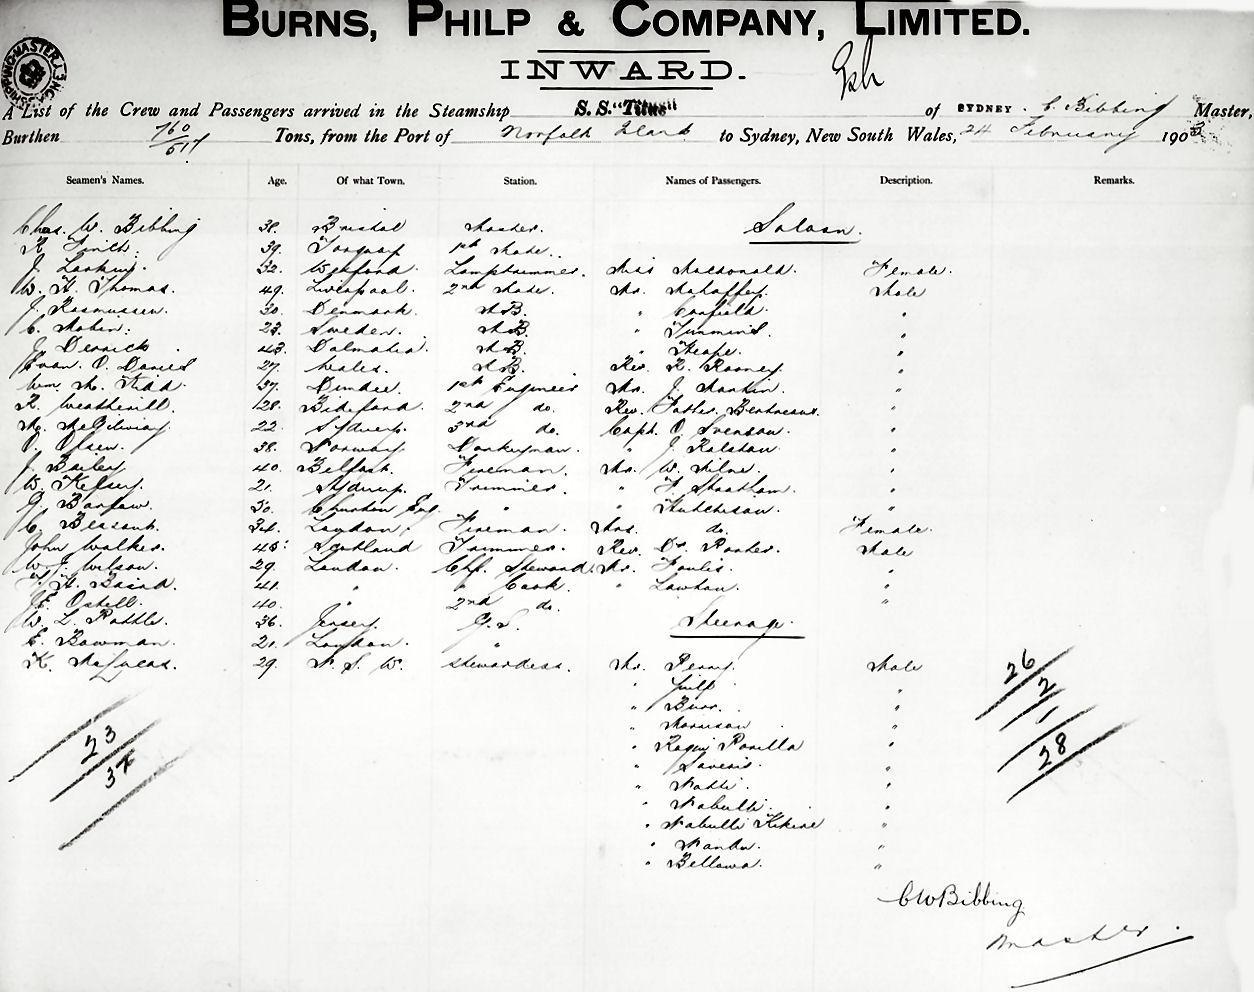 BURNS, PHILP & COMPANY, LIMITED.
INWARD.
A List of the Crew and Passengers arrived in the Steamship S.S. "Titus" of SYDNEY. C. Bibbing Master,
Burthen 760/517 Tons, from the Port of Norfolk Island to Sydney, New South Wales, 24 February 1903
Seamen's Names. Age. Of what Town. Station. Names of Passengers. Description. Remarks.
Chas. W. Bibbing 38. Bristol Master. Saloon.
R. Smith. 39. Torquay 1st Mate.
J. Larkin. 32. Wexford. Lamptrimmer. Miss Macdonald. Female.
W. H. Thomas. 49. Liverpool. 2nd Mate. Mr. Mahaffey. Male
J. Rasmussen. 30. Denmark. AB. " Canfield. "
C. 23. Sweden. AB. " Timmins. "
J. Derrick. 43. Dalmatia. AB. " Heape. "
Evan O. Davies 27. Wales. AB. Rev. R. Rooney "
Wm. M. Kidd. 37. Dundee. 1st Engineer Mr. J. Mankin. "
R. Weatherill. 28. Bideford. 2nd do. Rev. Father "
M. McGilvray 22. Sydney. 3rd do. Capt. O. Svensen. "
O. Olsen. 38. Norway Donkeyman. " J. Ralston. "
J. Bailey 40. Belfast. Fireman. Mr. W. Milne. "
W. Kelsey. 21. Sydney. Trimmer. " F. Stratham. "
G. 30. Eng. " " Hutchison. "
C. Bessant. 34. London. Fireman. Mrs. do. Female.
John Walker. 45. Scotland Trimmer. Rev. Dr. Male
W. J. Wilson. 29. London. Chf. Steward. Mr. Fowlis. "
F. H. Baird. 41. " " Cook. " Lawton. "
J. E. Ostell. 40. " 2nd do. "
W. L. Pottle. 36. Jersey. G.S. Steerage.
E. Bowman. 21. London. "
K. McLucas. 29. N. S. W. Stewardess. Mr. Perry. Male
" "
" Burr. "
" Morrison. "
" "
" "
" Natti. "
" Nabutti. "
" Nabutti Kikine "
" "
" Bellowa. "
23
37
26
2
1
28
CWBibbing
Master.